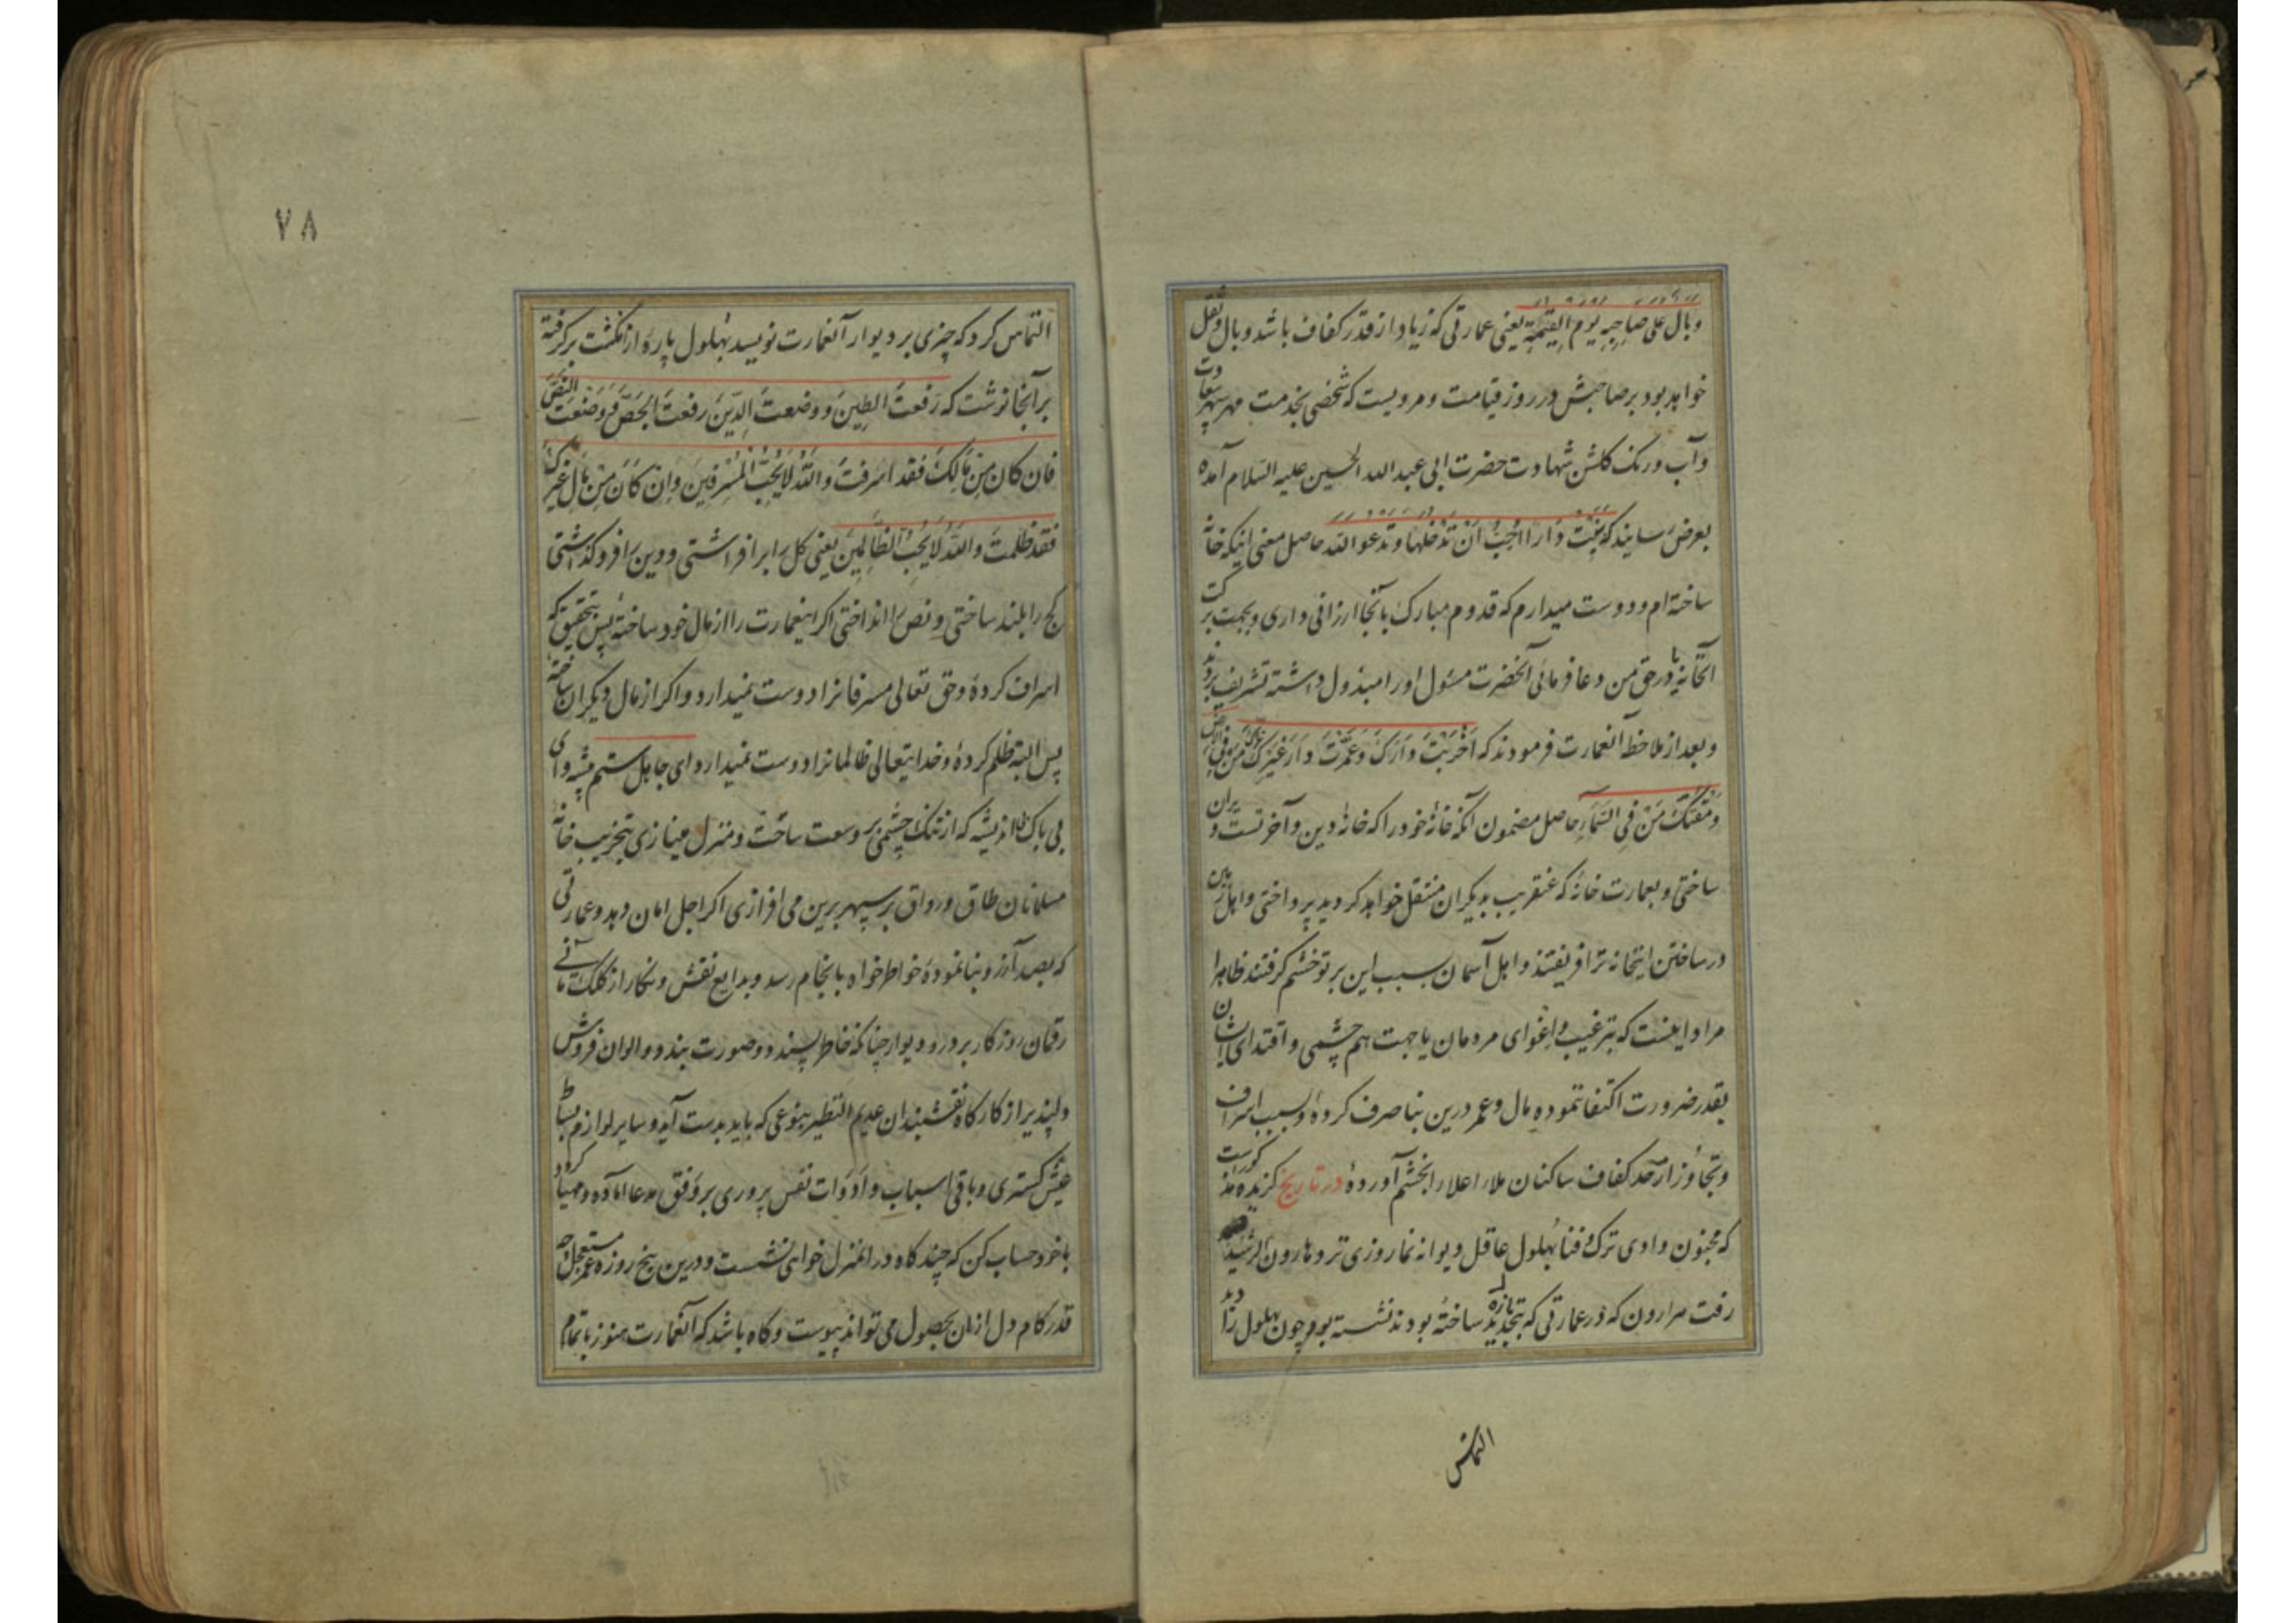 وبال علی صاحبه یوم القیمة یعنی عمارتی که زیاد از قدر کفاف باشد وبال و ثقل
خواهد بود بر صاحبش در روز قیامت و مرویست که شخصی بخدمت مهر سپهر سعادت
و آب و رنک کلشن شهادت حضرت ابی عبد الله الحسین علیه السلام آمده
بعرض رسانید که بَنَیْتُ دَاراً اُحِبُّ اَنْ تَدْخُلَهَا وَتَدْعُوَ اللّه حاصل معنی اینکه خانهٔ
ساخته‌ام و دوست میدارم که قدوم مبارک بآنجا ارزانی داری و بجهت برکت
آنخانه یا در حق من دعا فرمائی آنحضرت مسئول او را مبذول داشته تشریف بردند
و بعد از ملاحظه آنعمارت فرمودند که اَخْرَبْتَ دَارَکَ وَعَمَّرْتَ دَارَ غَیْرِکَ مَنْ فِی الارض
وَمَقَتَکَ مَنْ فِی السَّمَاءِ حاصل مضمون آنکه خانهٔ خود را که خانهٔ دین و آخرتست ویران
ساختی و بعمارت خانهٔ که عنقریب بدیکران منتقل خواهد کردید پرداختی و اهل زمین
در ساختن اینخانه ترا فریفتند و اهل آسمان بسبب این بر تو خشم کرفتند ظاهرا
مراد اینست که بترغیب و اغوای مردمان یا جهت هم چشمی و اقتدای ایشان
بقدر ضرورت اکتفا ننموده مال و عمر درین بنا صرف کردهٔ و بسبب اسراف
و تجاوز از حد کفاف ساکنان ملاء اعلا را بخشم آوردهٔ در تاریخ کزیده مذکورست
که مجنون وادی ترک و فنا بهلول عاقل دیوانه نما روزی نزد هارون الرشید
رفت هرارون که در عمارتی که بتجدید تازه ساخته بودند نشسته بود چون بهلول را دید
التماس
٧٨
التماس کرد که چیزی بر دیوار آنعمارت نویسد بهلول پارهٔ از انکشت برکرفته
بر آنجا نوشت که رَفَعتَ الطینَ و وضعتَ الدّینَ رفعتَ الجَصّ وَوَضَعتَ النَصّ
فان کان مِن مَالِکَ فقد اسرفتَ واللّهُ لَا یُحِبُّ الْمُسْرِفِینَ وَاِن کَانَ مِنْ مَالِ غَیرِکَ
فقد ظَلَمتَ واللّهُ لَا یُحِبُّ الظّالِمِینَ یعنی کل را برافراشتی و دین را فروکذاشتی
کج را بلند ساختی و نص را انداختی اکر اینعمارت را از مال خود ساختهٔ پس بتحقیق که
اسراف کردهٔ و حق تعالی مسرفانرا دوست نمیدارد و اکر از مال دیکران ساختهٔ
پس البته ظلم کردهٔ و خدایتعالی ظالمانرا دوست نمیدارد ای جاهل ستم پیشه و ای
بی باک اندیشه که از تنک چشمی بر وسعت ساحت و منزل مینازی بتخریب خانهٔ
مسلمانان طاق و رواق بر سپهر برین می افرازی اکر اجل امان دهد و عمارتی
که بصد آرزو بنا نمودهٔ خواطرخواه بانجام رسد و بدایع نقش و نکار از کلک مانی
رقمان روزکار بر در و دیوار چنانکه خاطر پسندد صورت بندد و الوان فروش
دلپذیر از کارکاه نقشبندان عدیم النظیر بنوعی که باید بدست آید و سایر لوازم بساط
عیش کستری و باقی اسباب و ادوات نفس پروری بر وفق مدعا آماده و مهیا کردد
با خود حساب کن که چند کاه در انمنزل خواهی نشست و درین پنج روزه عمر مستعجل چه
قدر کام دل ازان بحصول می تواند پیوست و کاه باشد که آنعمارت هنوز باتمام